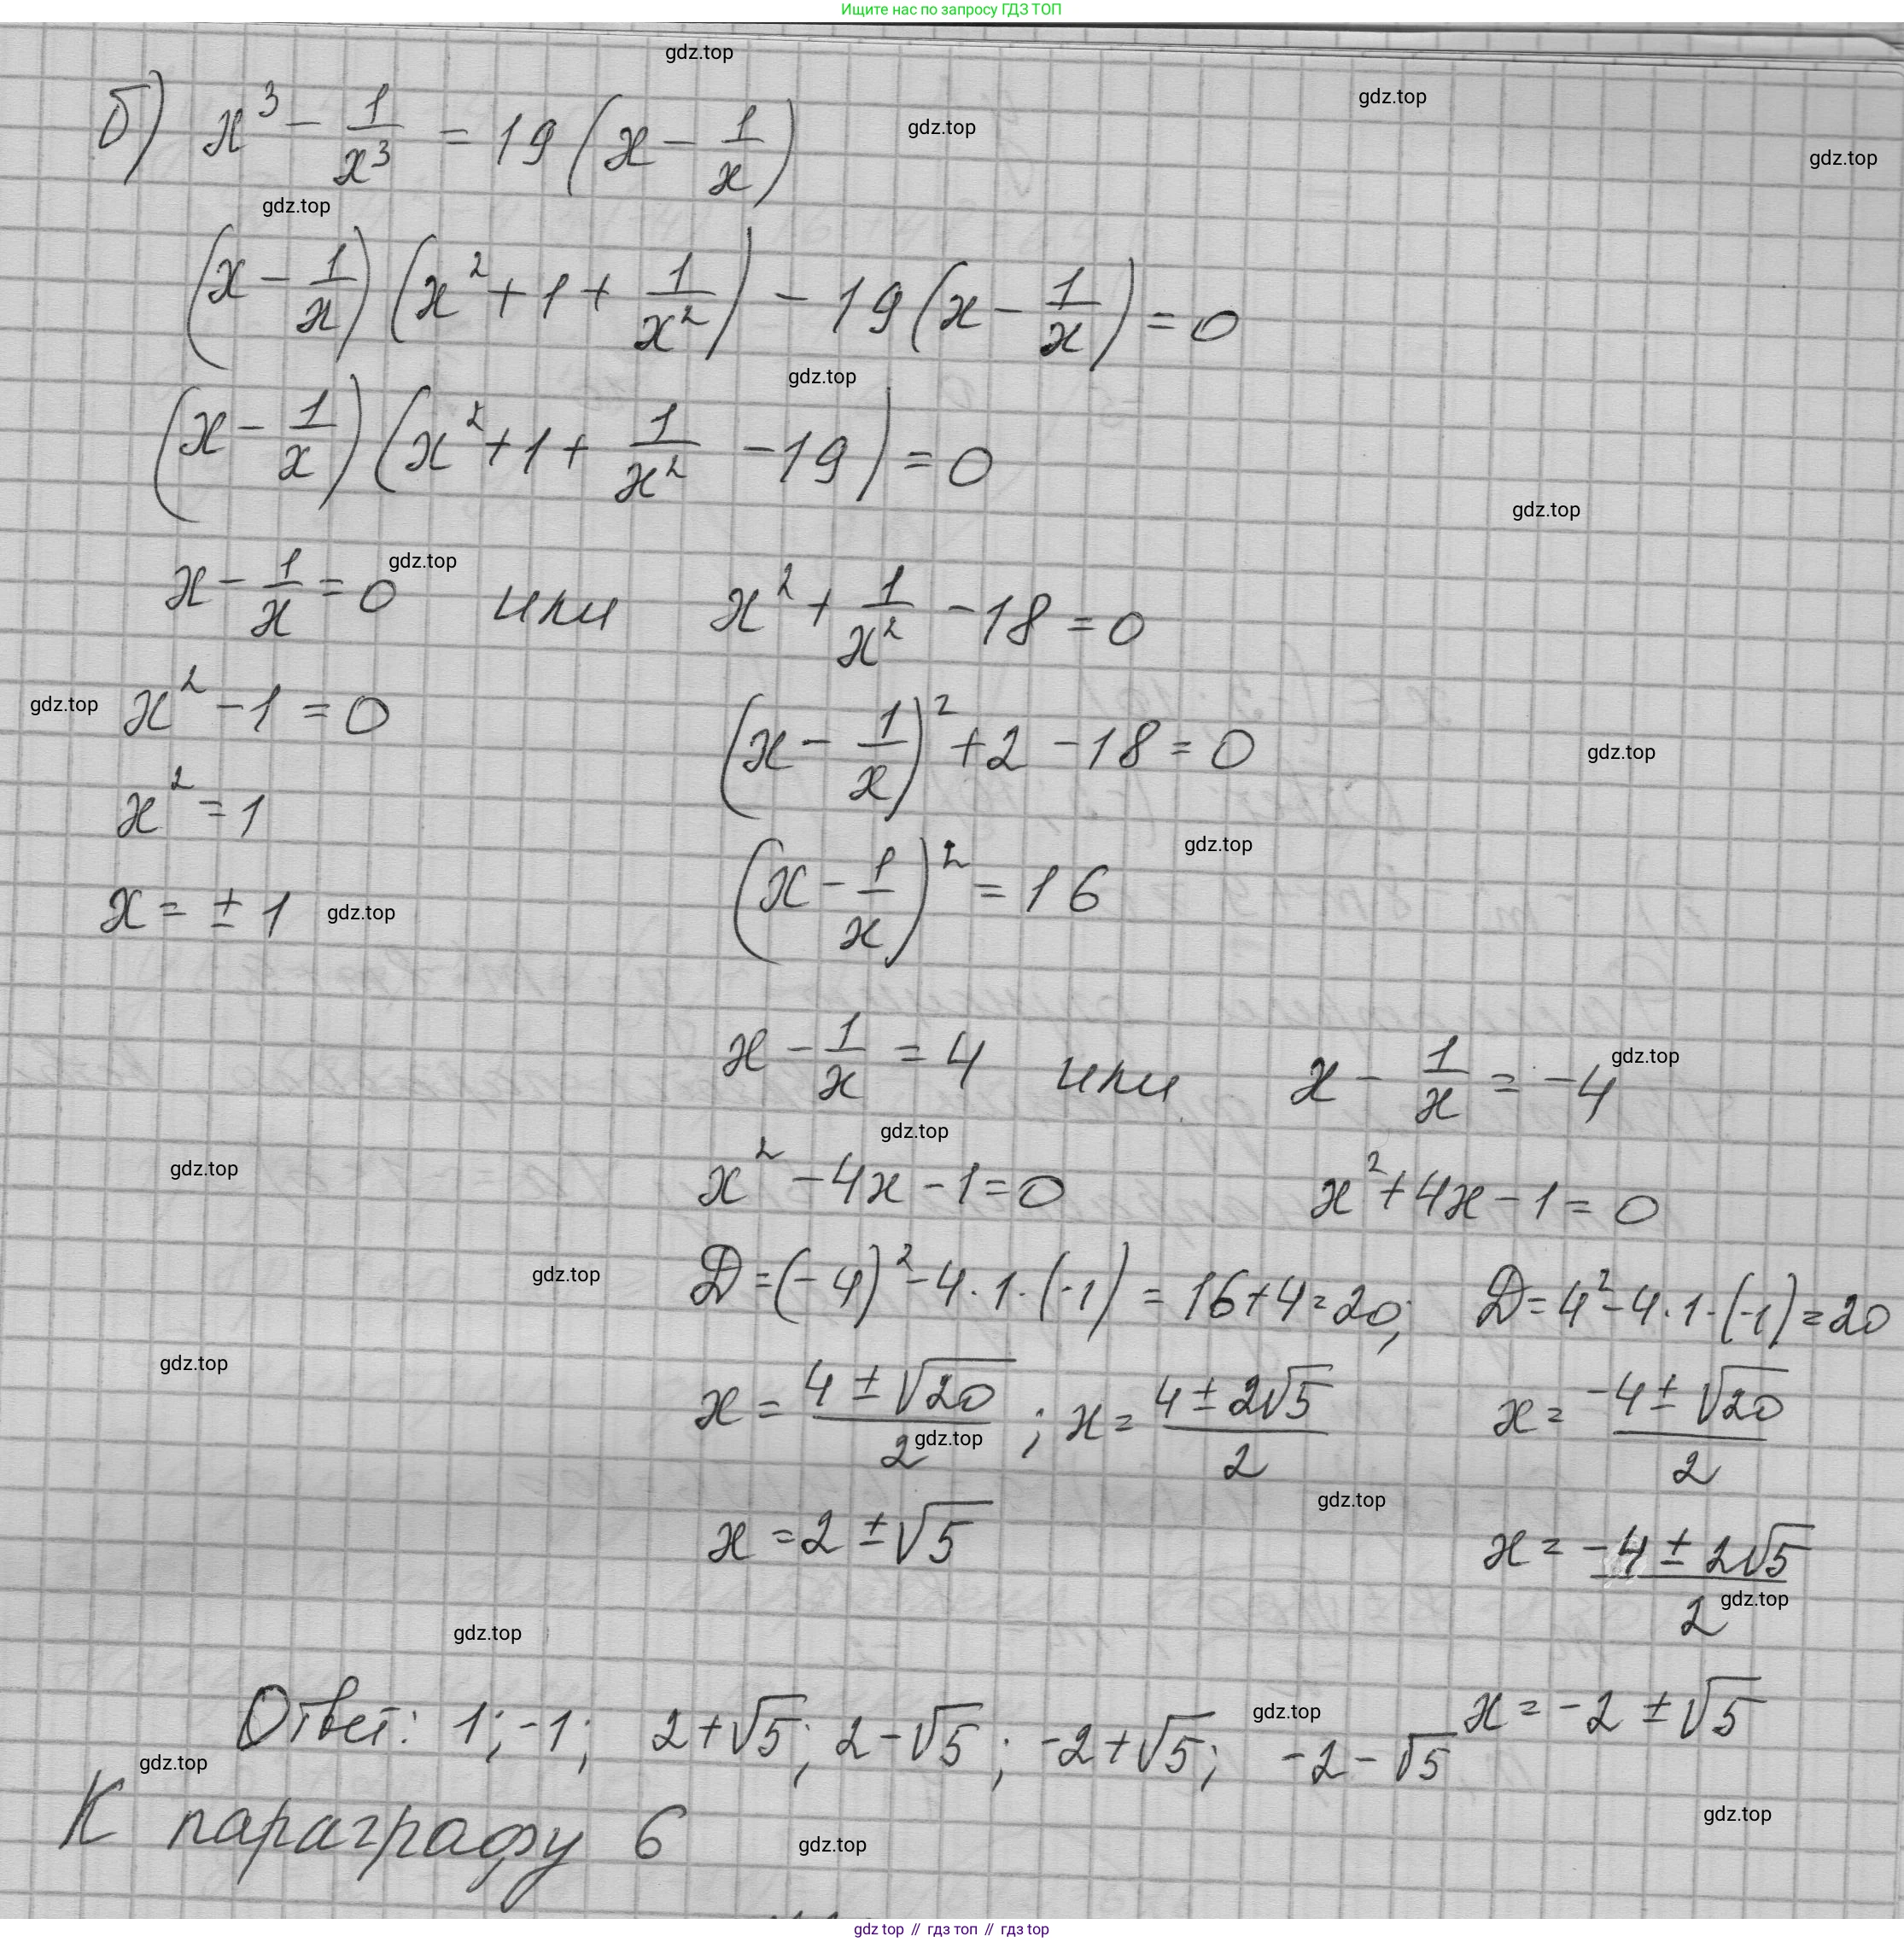 Ищите нас по запросу ГДЗ ТОП
gdz.top
gdz.top
gdz.top
gdz.top
б) x³ − 1/x³ = 19(x − 1/x)
gdz.top
(x − 1/x)(x² + 1 + 1/x²) − 19(x − 1/x) = 0
gdz.top
(x − 1/x)(x² + 1 + 1/x² − 19) = 0
gdz.top
gdz.top
x − 1/x = 0 или x² + 1/x² − 18 = 0
gdz.top
x² − 1 = 0
(x − 1/x)² + 2 − 18 = 0
gdz.top
x² = 1
gdz.top
(x − 1/x)² = 16
x = ± 1
gdz.top
x − 1/x = 4 или x − 1/x = −4
gdz.top
gdz.top
gdz.top
x² − 4x − 1 = 0
x² + 4x − 1 = 0
gdz.top
D = (−4)² − 4·1·(−1) = 16 + 4 = 20;
D = 4² − 4·1·(−1) = 20
gdz.top
x = (4 ± √20)/2 ; x = (4 ± 2√5)/2
x = (−4 ± √20)/2
gdz.top
gdz.top
x = 2 ± √5
x = (−4 ± 2√5)/2
gdz.top
gdz.top
x = −2 ± √5
gdz.top
Ответ: 1; −1; 2+√5; 2−√5; −2+√5; −2−√5
gdz.top
К параграфу 6
gdz.top
gdz.top
gdz top // гдз топ // гдз top